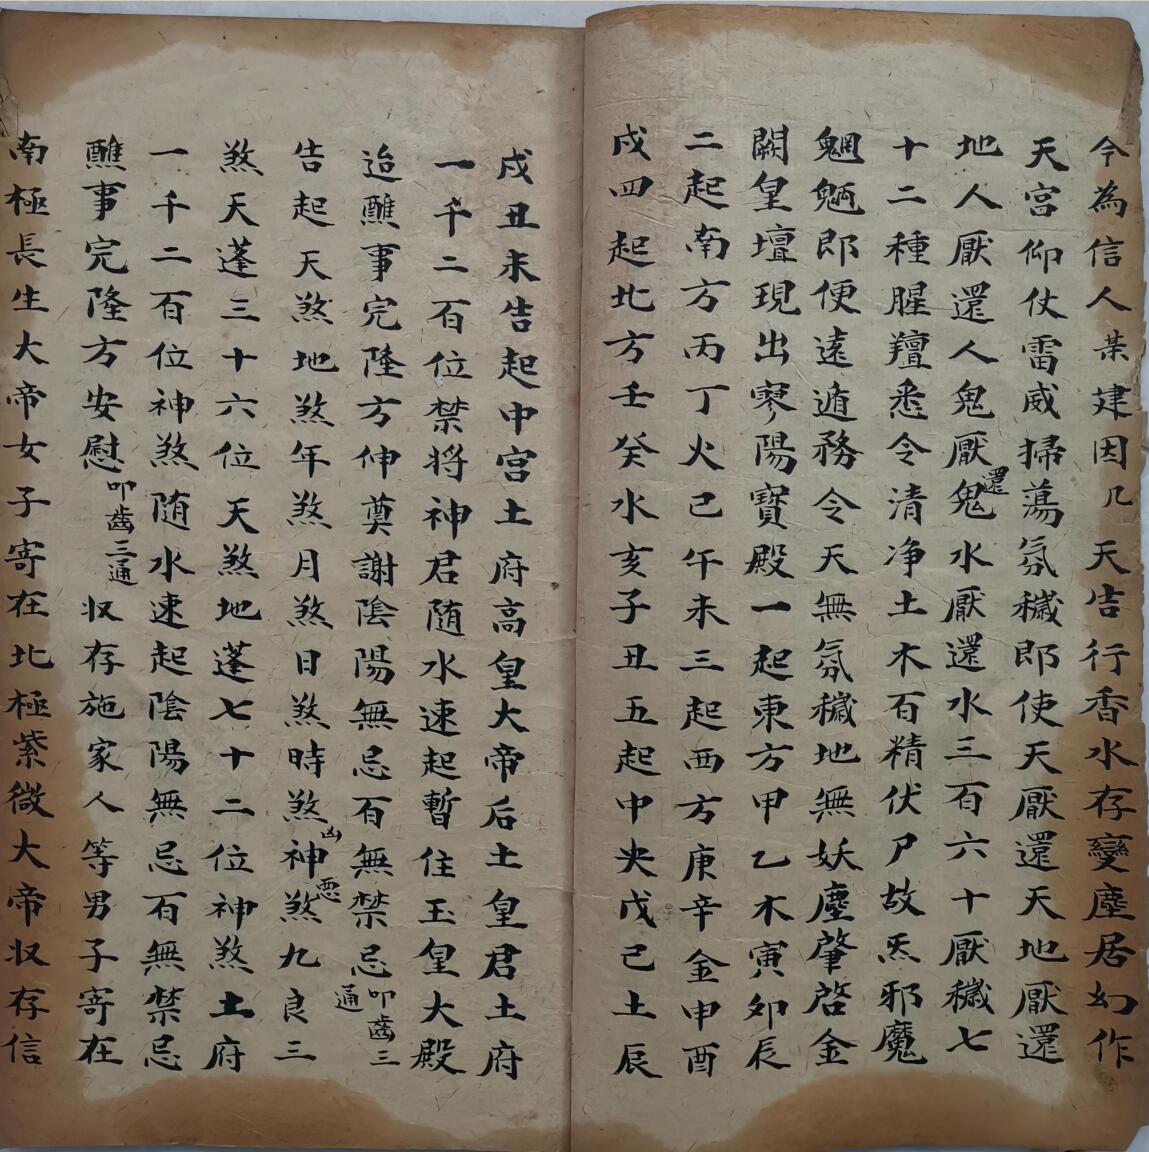 今為信人某建因几天吉行香水存變塵居幻作
天宮仰仗雷威掃蕩氛穢郎使天厭還天地厭還
地人厭還人鬼厭還鬼水厭還水三百六十厭穢七
十二種腥羶悉令清净土木百精伏尸故炁邪魔
魍魎郎便遠遁務令天無氛穢地無妖塵肇啓金
闕皇壇現出寥陽寶殿一起東方甲乙木寅夘辰
二起南方丙丁火巳午未三起西方庚辛金申酉
戌四起北方壬癸水亥子丑五起中央戊己土辰
戌丑未告起中宮土府高皇大帝后土皇君土府
一千二百位禁将神君随水速起暫住玉皇大殿
迨醮事完隆方伸奠謝陰陽無忌百無禁忌叩齒三通
告起天煞地煞年煞月煞日煞時煞凶神惡煞九良三
煞天蓬三十六位天煞地蓬七十二位神煞土府
一千二百位神煞随水速起陰陽無忌百無禁忌
醮事完隆方安慰叩齒三通収存施家人等男子寄在
南極長生大帝女子寄在北極紫微大帝収存信